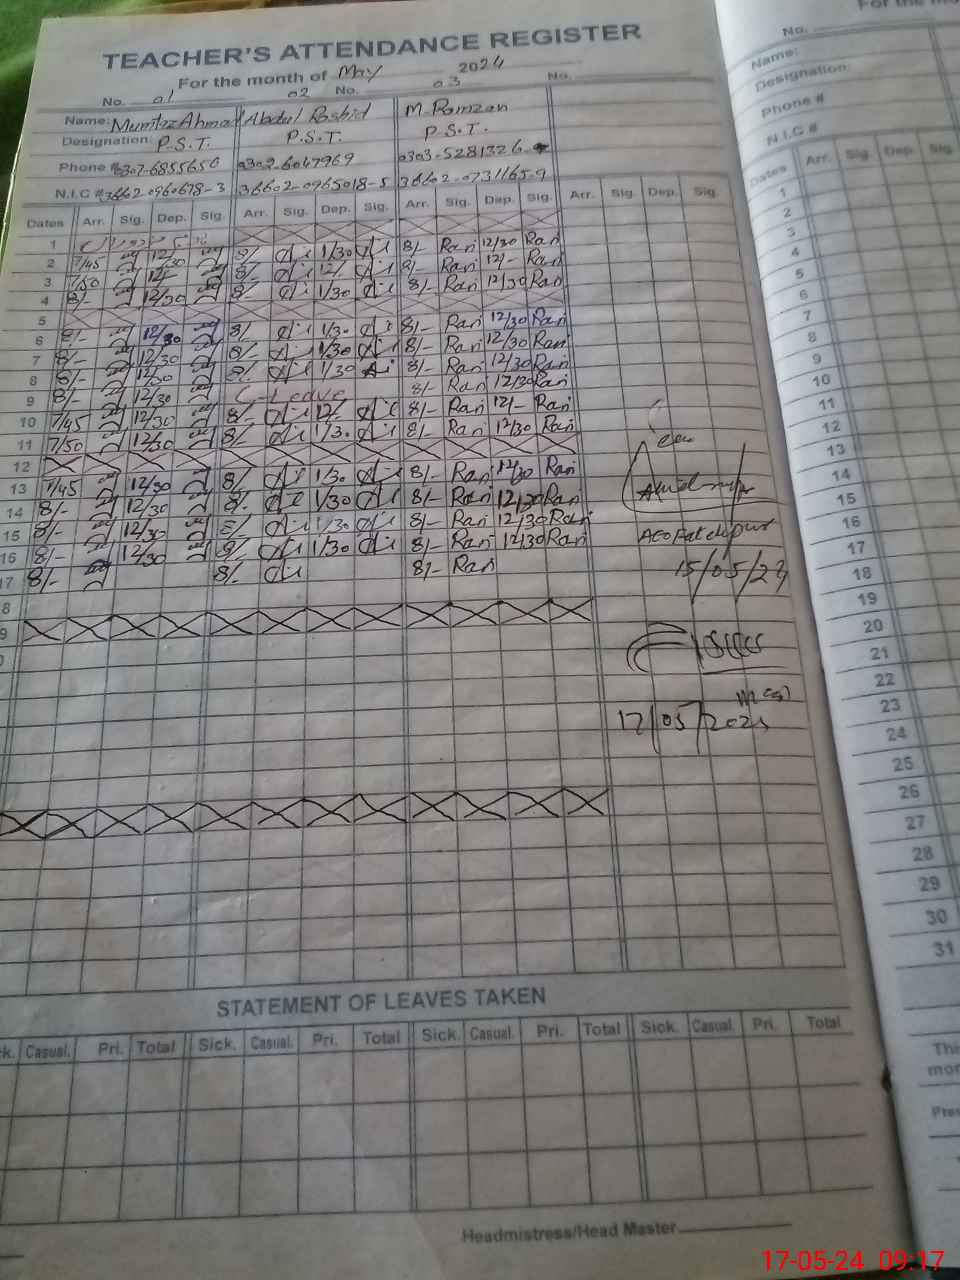 TEACHER'S ATTENDANCE REGISTER
For the month of May 2024
No. 01 02 No. 03 No.
Name: Mumtaz Ahmad Abdul Rashid M. Ramzan
Designation: P.S.T. P.S.T. P.S.T.
Phone # 0307-6855656 0302-6047969 0303-5281326
N.I.C # 36602-0960678-3 36602-0965018-5 36602-0731165-9
Dates Arr. Sig. Dep. Sig. Arr. Sig. Dep. Sig. Arr. Sig. Dep. Sig. Arr. Sig. Dep. Sig.
1
2 7/45 12/30 8/- 1/30 8/- Ran 12/30 Ran
3 7/50 12/- 8/- 12/- 8/- Ran 12/- Ran
4 8/- 12/30 8/- 1/30 8/- Ran 12/30 Ran
5
6 8/- 12/30 8/- 1/30 8/- Ran 12/30 Ran
7 8/- 12/30 8/- 1/30 8/- Ran 12/30 Ran
8 8/- 12/30 8/- 1/30 8/- Ran 12/30 Ran
9 8/- 12/30 C-Leave 8/- Ran 12/30 Ran
10 7/45 12/30 8/- 12/- 8/- Ran 12/- Ran
11 7/50 12/30 8/- 1/30 8/- Ran 12/30 Ran
12
13 7/45 12/30 8/- 1/30 8/- Ran 12/30 Ran
14 8/- 12/30 8/- 1/30 8/- Ran 12/30 Ran
15 8/- 12/30 8/- 1/30 8/- Ran 12/30 Ran
16 8/- 12/30 8/- 1/30 8/- Ran 12/30 Ran
17 8/- 8/- 8/- Ran
8
9
AEO Fatehpur
15/05/24
17/05/2024
STATEMENT OF LEAVES TAKEN
Sick. Casual. Pri. Total Sick. Casual. Pri. Total Sick. Casual. Pri. Total Sick. Casual. Pri. Total
Headmistress/Head Master
For the mo
No.
Name:
Designation:
Phone #
N.I.C #
Dates Arr. Sig. Dep. Sig.
1
2
3
4
5
6
7
8
9
10
11
12
13
14
15
16
17
18
19
20
21
22
23
24
25
26
27
28
29
30
31
17-05-24 09:17